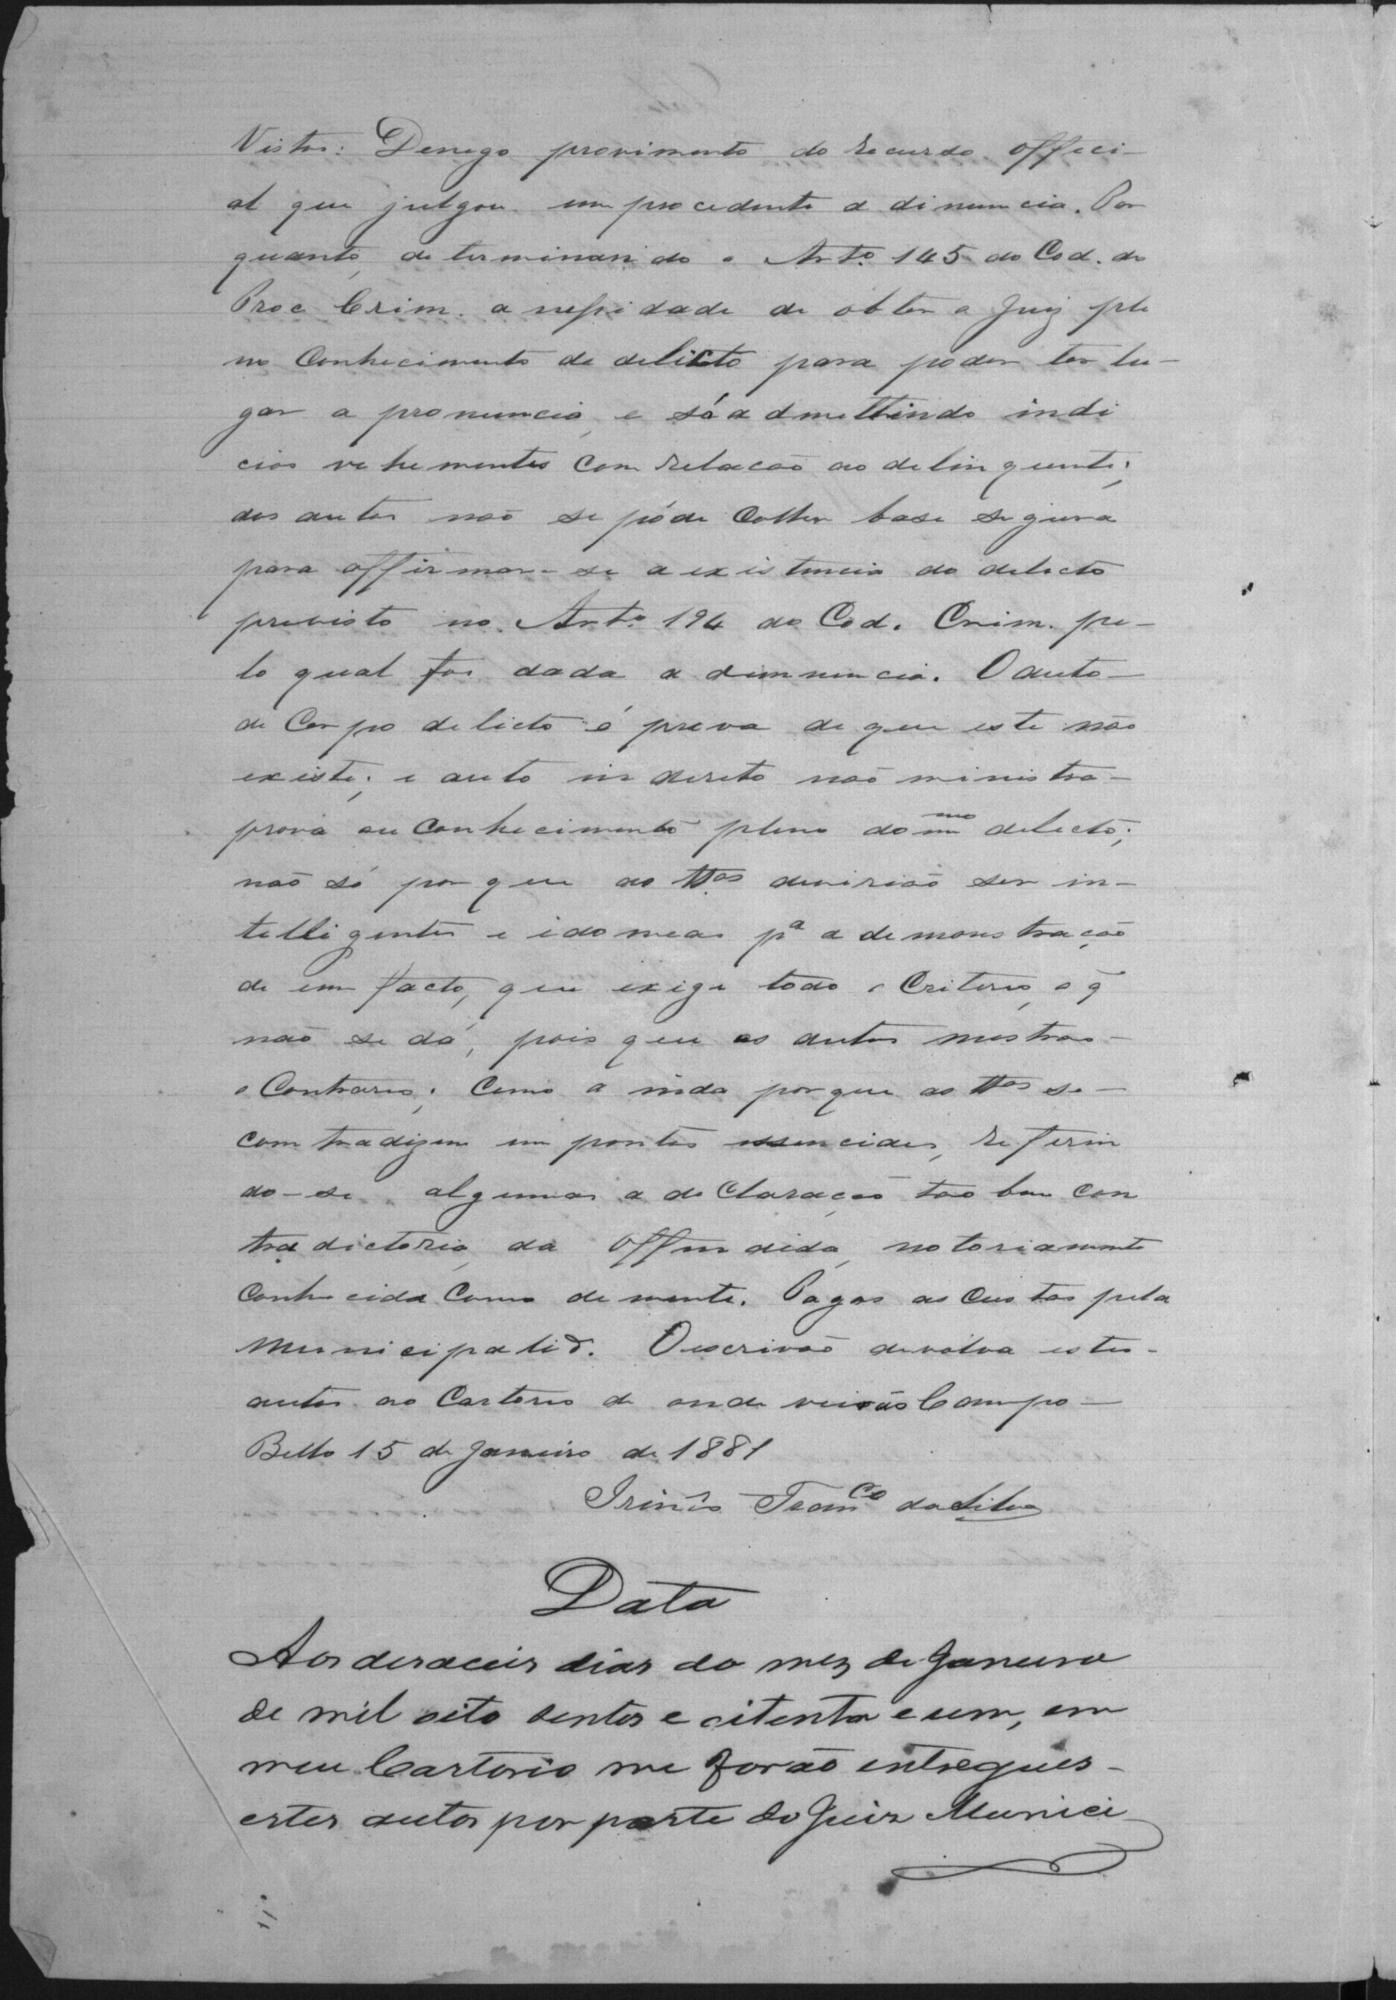 Vistos: Denego provimento do recurso offeci-
al que julgou improcedente a dinuncia. Por
quanto, determinando o Artº 145 do Cod. do
Proc Crim. a nessidade de obter o Juiz ple
no conhecimento do delicto para poder ter lu-
gar a pronuncia, e só admettindo indi
cios vehementes com relacão ao delinquente;
dos autos não se póde colher base segura
para affirmar-se a existencia do delicto
previsto no Artº 194 do Cod. Crim. pe-
lo qual foi dada a dinnuncia. O auto-
de Corpo delicto é prova de que este não
existe; e auto indireto não ministra-
prova ou conhecimento pleno do mmo delecto;
não só porque as ttas devirião ser in-
telligentes e idoneas pª a demonstração
de um facto, que exige todo o Criterio, o q̃
não se dá, pois que os autos mostrão-
o Contrario; Como ainda porque as ttas se-
comtradizem em pontos essenciaes, referin
do-se algumas a declaração tão bem con
tradictoria, da offendida, notoriamente
conhecida como demente. Pagas as custas pela
Municipalidᵉ. O escrivão devolva estes-
autos ao Cartorio de onde veirão Campo-
Bello 15 de Janeiro de 1881
Irinêo Franco da Silva
Data
Aos deraceis dias do mez de Janeiro
de mil oito sentos e oitenta e um, em
meu Cartorio me forão entregues-
estes autos por parte do Juiz Munici